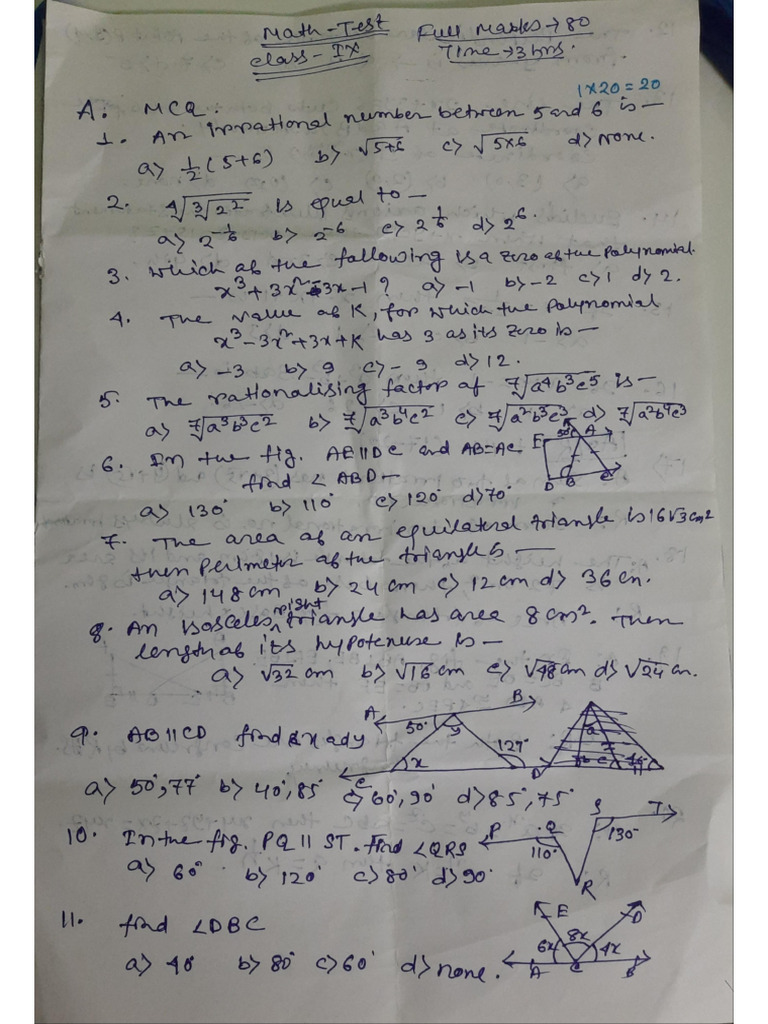 Math - Test Full Marks → 80
Class - IX Time → 3 hrs.
1 × 20 = 20
A. MCQ.
1. An irrational number between 5 and 6 is —
a) 1/2 (5+6) b) √5+6 c) √5×6 d) none.
2. ∜∛2² is equal to —
a) 2^-1/6 b) 2^-6 c) 2^1/6 d) 2^6.
3. Which of the following is a zero of the polynomial
x³ + 3x² - 3x - 1 ? a) -1 b) -2 c) 1 d) 2.
4. The value of K, for which the polynomial
x³ - 3x² + 3x + K has 3 as its zero is —
a) -3 b) 9 c) -9 d) 12.
5. The rationalising factor of ⁷√a⁴b³c⁵ is —
a) ⁷√a³b³c² b) ⁷√a³b⁴c² c) ⁷√a²b³c³ d) ⁷√a²b⁴c³
6. In the fig. AE∥DC and AB=AC E 50° A
find ∠ABD —
D B C
a) 130° b) 110° c) 120° d) 70°
7. The area of an equilateral triangle is 16√3 cm²
then perimeter of the triangle is —
a) 148 cm b) 24 cm c) 12 cm d) 36 cm.
8. An isosceles right triangle has area 8 cm². Then
length of its hypotenuse is —
a) √32 cm b) √16 cm c) √48 cm d) √24 cm.
A B
9. AB∥CD find x and y 50° y 127°
x
C D
a) 50°, 77° b) 40°, 85° c) 60°, 90° d) 85°, 75°
10. In the fig. PQ∥ST. Find ∠QRS P Q S T
110° 130°
R
a) 60° b) 120° c) 80° d) 90°
11. find ∠DBC E D
6x 8x 4x
a) 40° b) 80° c) 60° d) none. A C B